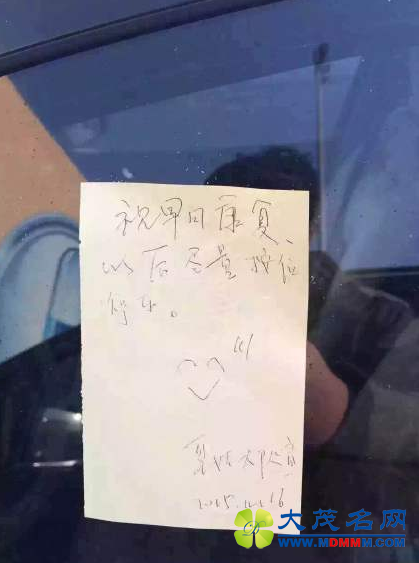 祝早日康复、
以后尽量按位
停车。
2015.12.16
大茂名网
WWW.MDMMM.COM